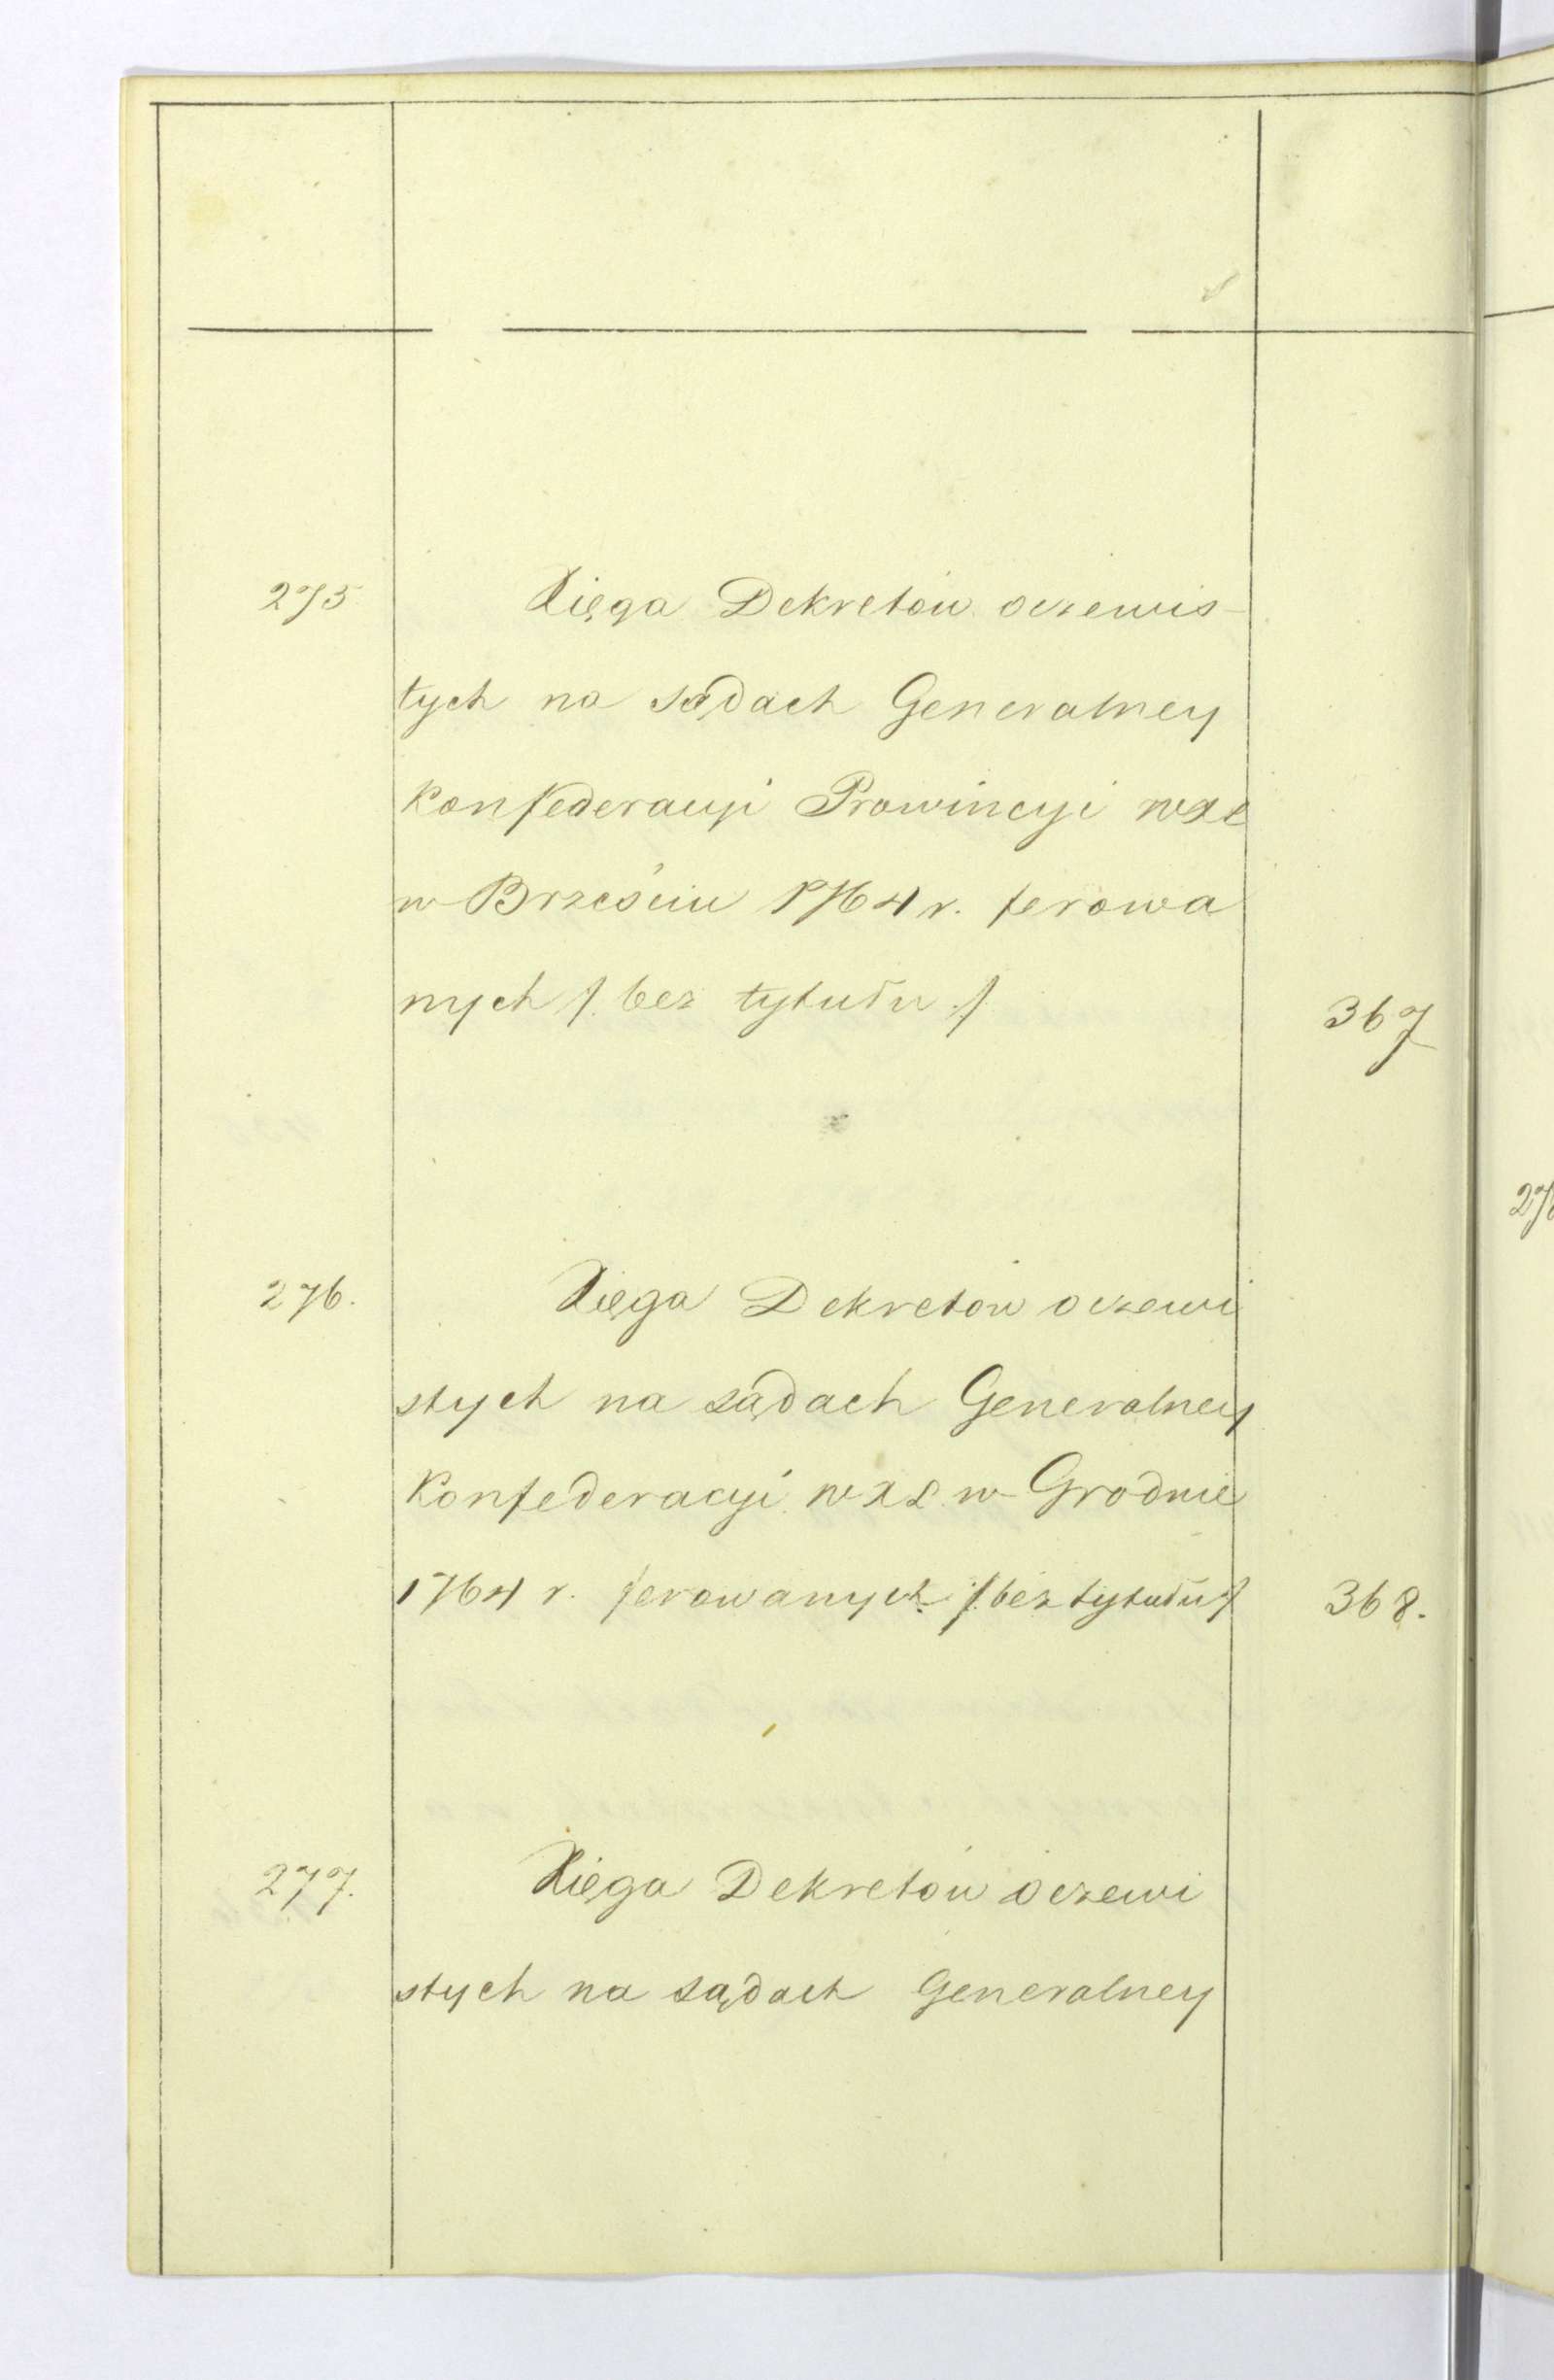 275 Xięga Dekretów oczewis-
tych na sądach Generalney
Konfederacyi Prowincyi WXL
w Brześciu 1764 r. ferowa
nych /: bez tytułu :/ 367
276. Xięga Dekretów oczewi
stych na sądach Generalney
Konfederacyi WXL w Grodnie
1764 r. ferowanych /: bez tytułu :/ 368.
277. Xięga Dekretów oczewi
stych na sądach Generalney